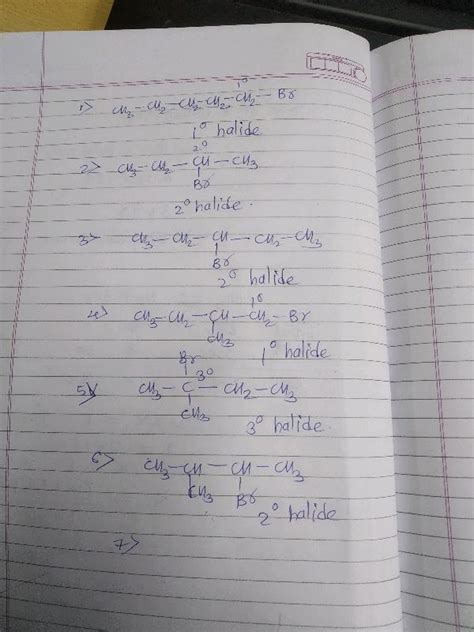 1°
1> CH₂—CH₂—CH₂—CH₂—CH₂—Br
1° halide
2°
2> CH₃—CH₂—CH—CH₃
Br
2° halide.
3> CH₃—CH₂—CH—CH₂—CH₃
Br
2° halide
1°
4> CH₃—CH₂—CH—CH₂—Br
CH₃
1° halide
Br
3°
5> CH₃—C—CH₂—CH₃
CH₃
3° halide.
6> CH₃—CH—CH—CH₃
CH₃ Br
2° halide
7>